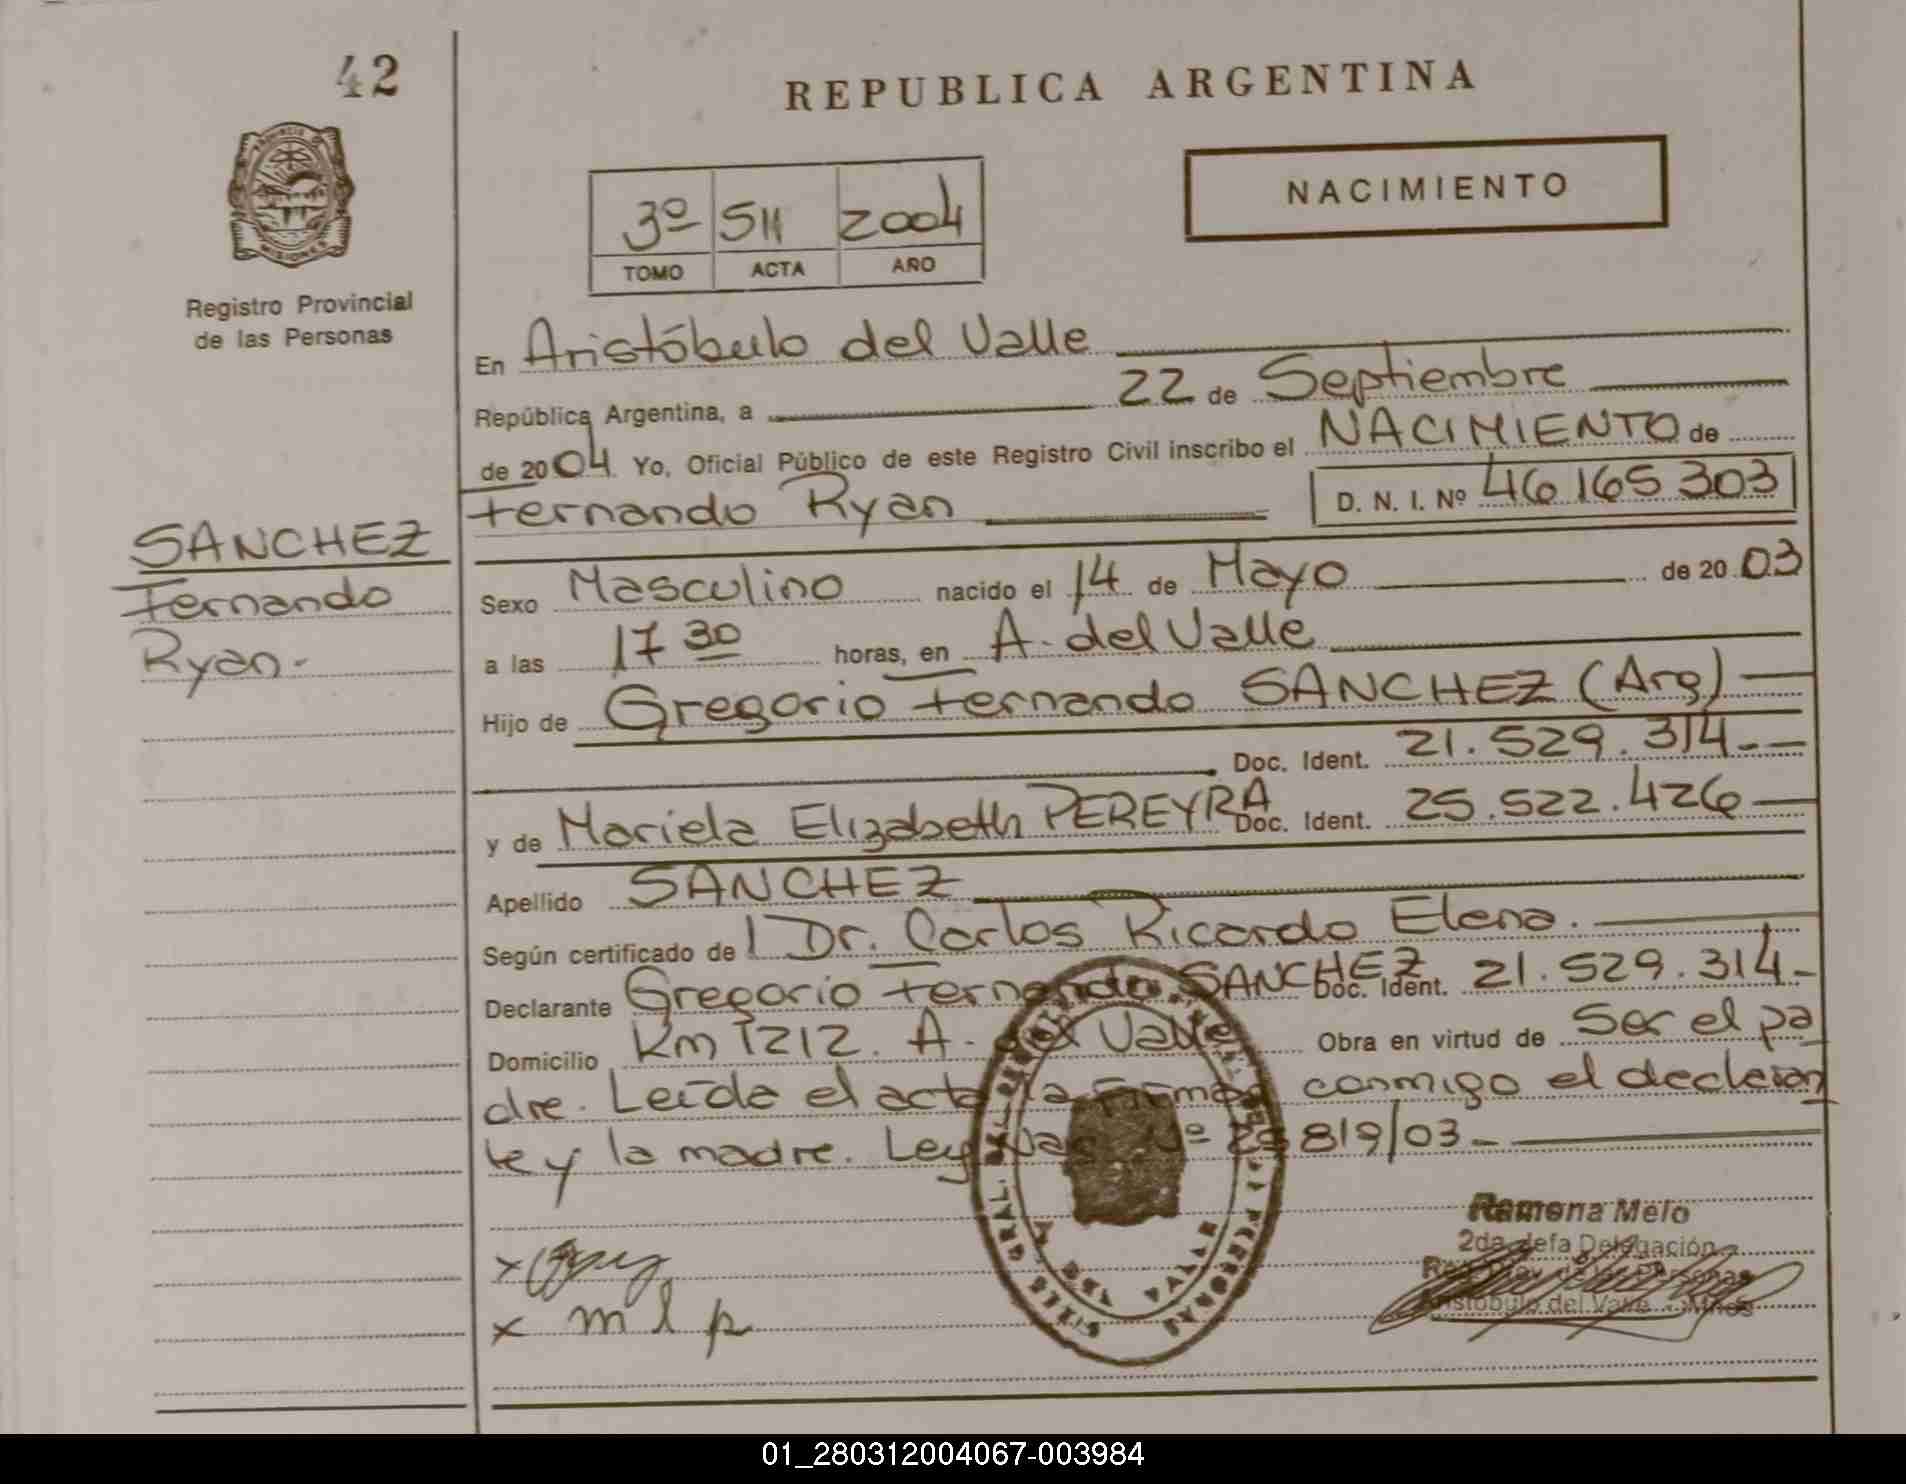 42
REPUBLICA ARGENTINA
PROVINCIA
MISIONES
Registro Provincial
de las Personas
NACIMIENTO
3º 511 2004
TOMO ACTA AÑO
En Aristóbulo del Valle
República Argentina, a 22 de Septiembre
de 2004 Yo, Oficial Público de este Registro Civil inscribo el NACIMIENTO de
Fernando Ryan D. N. I. Nº 46165303
SANCHEZ
Fernando
Ryan.
Sexo Masculino nacido el 14 de Mayo de 2003
a las 17 30 horas, en A. del Valle
Hijo de Gregorio Fernando SANCHEZ (Arg)
Doc. Ident. 21.529.314
y de Mariela Elizabeth PEREYRA Doc. Ident. 25.522.426
Apellido SANCHEZ
Según certificado de Dr. Carlos Ricardo Elena.
Declarante Gregorio Fernando SANCHEZ Doc. Ident. 21.529.314
Domicilio Km 1212. A. del Valle Obra en virtud de Ser el pa
dre. Leída el acta la Firman conmigo el declaran
te y la madre. Ley Nac Nº 25819/03
x
x m l p
Ramona Melo
2da Jefa Delegación
Reg. Prov. de las Personas
Aristóbulo del Valle - Mnes
01_280312004067-003984